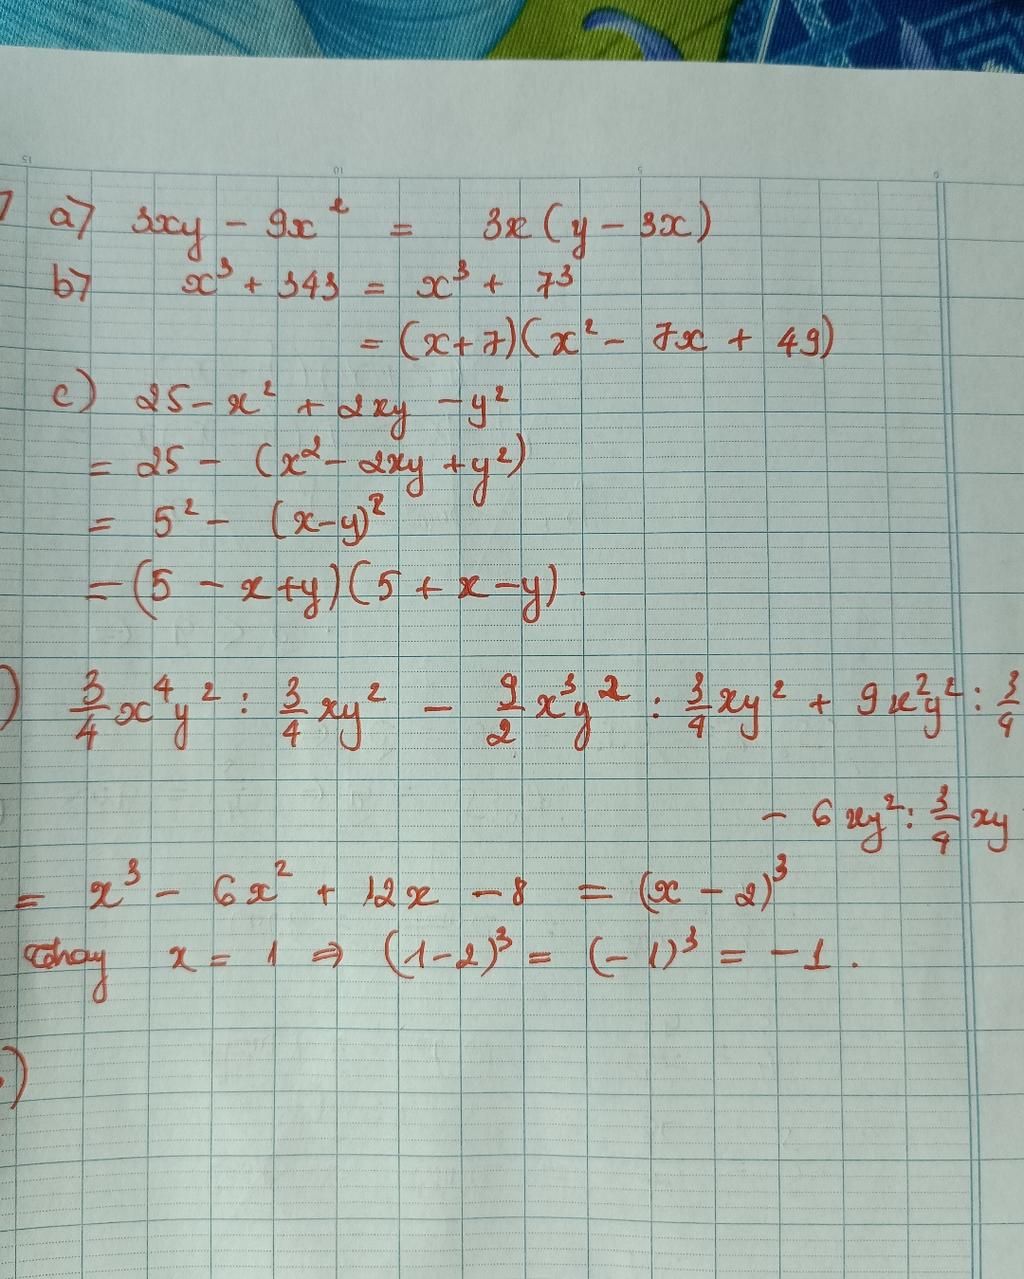 a) 3xy - 9x² = 3x(y - 3x)
b) x³ + 343 = x³ + 7³
= (x+7)(x² - 7x + 49)
c) 25 - x² + 2xy - y²
= 25 - (x² - 2xy + y²)
= 5² - (x-y)²
= (5 - x+y)(5 + x - y).
) 3/4 x⁴y² : 3/4 xy² - 9/2 x³y² : 3/4 xy² + 9x²y² : 3/4
- 6xy² : 3/4 xy
= x³ - 6x² + 12x - 8 = (x - 2)³
thay x = 1 ⇒ (1-2)³ = (-1)³ = -1.
)